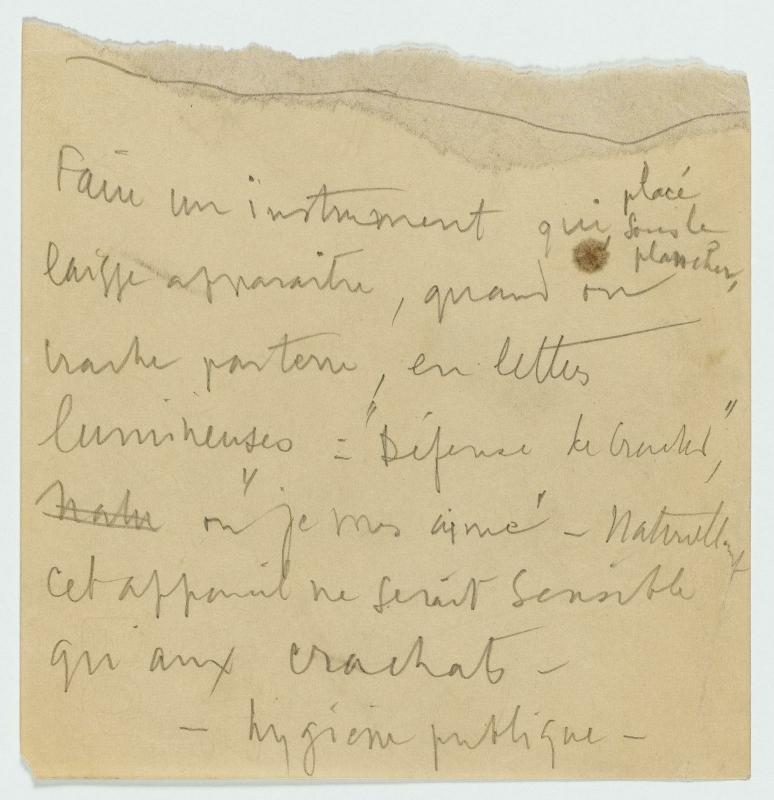 Faire un instrument qui, placé
sous le
plancher,
laisse apparaitre, quand on
crache par terre, en lettres
lumineuses = "Défense de cracher",
Natu ou "je vous aime" – Naturellemt
cet appareil ne serait sensible
qu'aux crachats –
– hygiène publique –